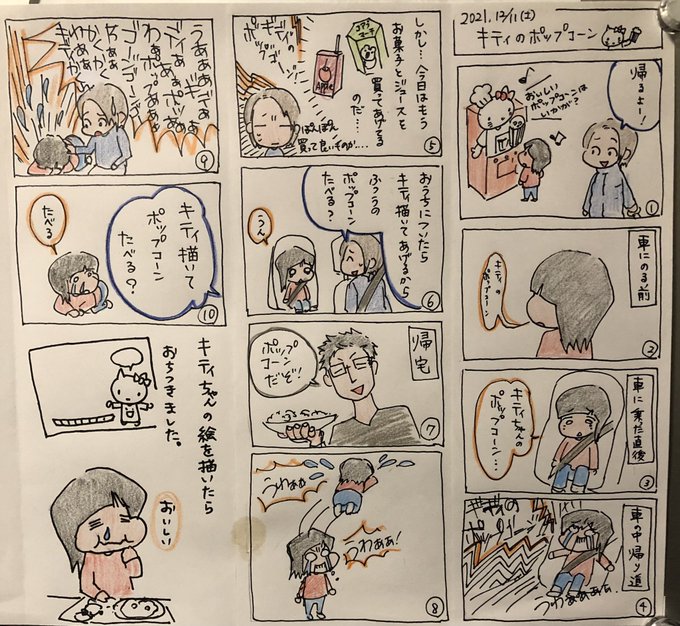 2021.12/11(土)
キティのポップコーン
帰るよー!
おいしい
ポップコーンは
いかがが?
①
車にのる前
キティの
ポップコーン
②
車に乗った直後
キティちゃんの
ポップコーン…
③
車の中帰り道
ギギィの
うわぁぁぁぁぁ
④
しかし…今日はもう
お菓子とジュースを
買ってあげる
のだ…
コアラ
マーチ
Apple
ギギィの
ぽんぽん
買って良いものか…
⑤
おうちについたら
キティ描いてあげるから
ふつうの
ポップコーン
たべる?
うん
⑥
帰宅
ポップ
コーン
だぞ!
⑦
うわぁぁ
うわぁぁ!
⑧
⑨
キティ描いて
ポップコーン
たべる?
たべる
⑩
キティちゃんの絵を描いたら
おちつきました。
おいしい